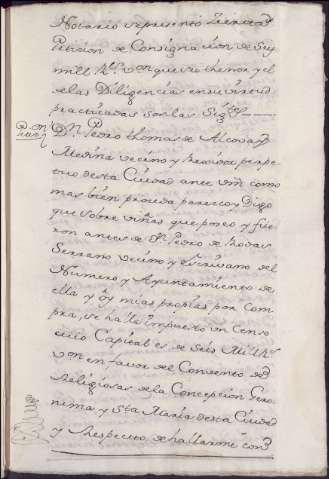 Notario se presentó
Peticion de Consignazion de Seis
mill R.s v.on que su thenor y el
de las Diligencias en su virtud
practicadas son las Sig.tes
D.n Pedro thomas de Alcoba y
Medina vezino y Rexidor perpe
tuo desta Ciudad ante vm como
mas bien proceda parezco y Digo
que sobre viñas que poseo y fue
ron antes de D.n Pedro de Rodas
Serrano vezino y escrivano del
Numero y Ayuntamiento de
ella y oy mias propias por com
pra, se halla impuesto un Censo
cuio Capital es de Seis Mill R.s
v.on en favor del Convento de
Religiosas de la Concepcion Gero
nima y S.ta Maria desta Ciudad
y Respecto de hallarme con